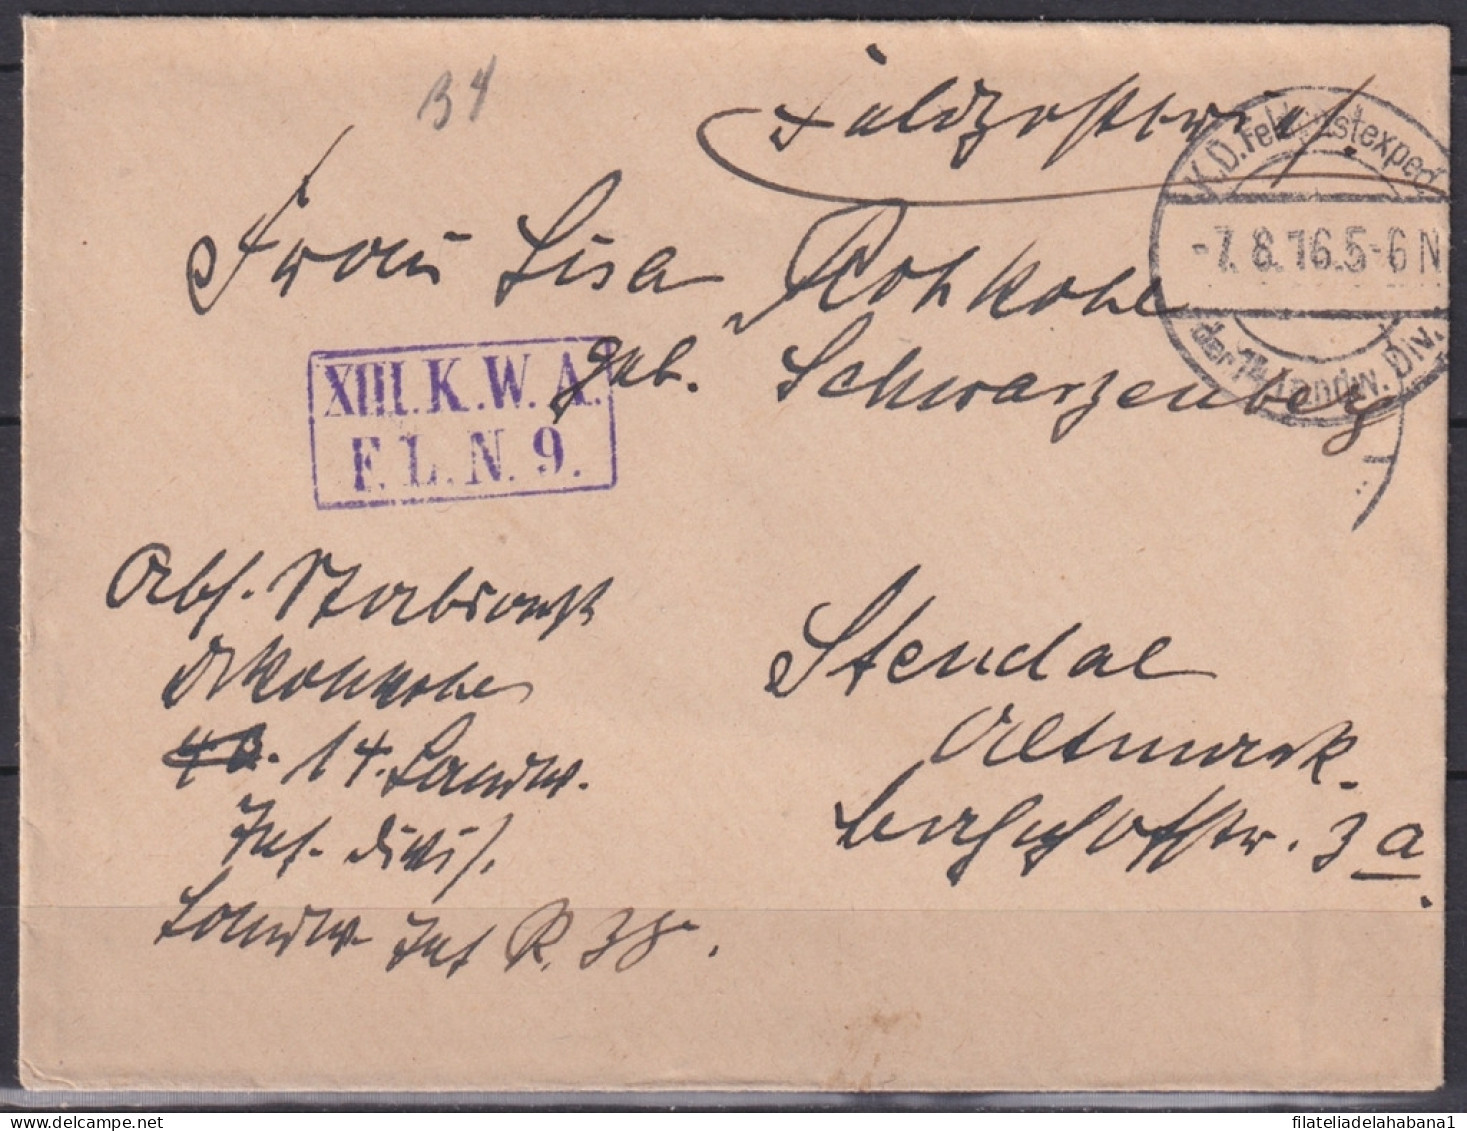 34
Feldpostbrief.
K.D. Feldpostexped.
-7.8.16.5-6N
der 14. Landw. Div.
Frau Lisa Rohkohl
geb. Schwarzenberg
XIII.K.W.A.
F.L.N.9.
Abs. Stabsarzt
Dr Rohkohl
14. Landw.
Inf. Divis.
Landw Inf R. 38.
Stendal
Altmark.
Bahnhofstr. 3a.
filateliadelahabana1